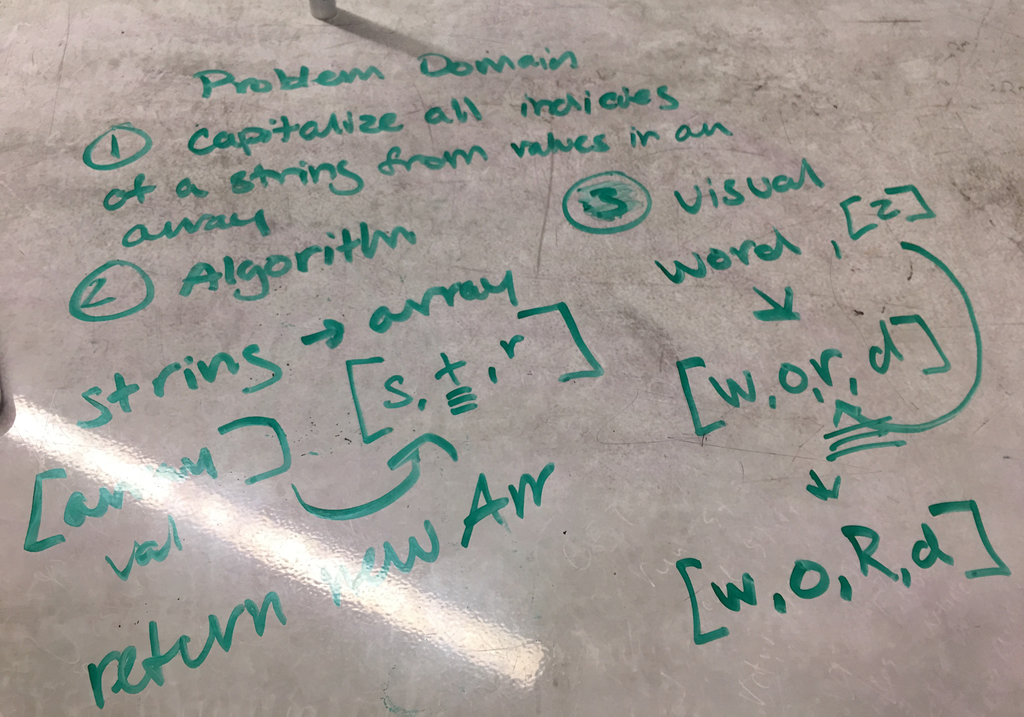 Problem Domain
① Capitalize all indicies
of a string from values in an
array
② Algorithm
string → array
[s, t, r]
[array]
val
return new Arr
③ visual
word, [2]
[w, o, r, d]
[w, o, R, d]